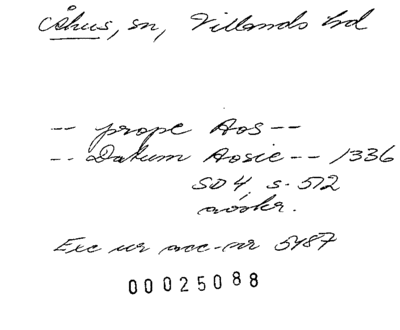 Åhus, sn, Villands hd
-- prope Aos --
-- Datum Aosie -- 1336
SD 4, s. 512
avskr.
Exc ur acc-nr 5487
00025088